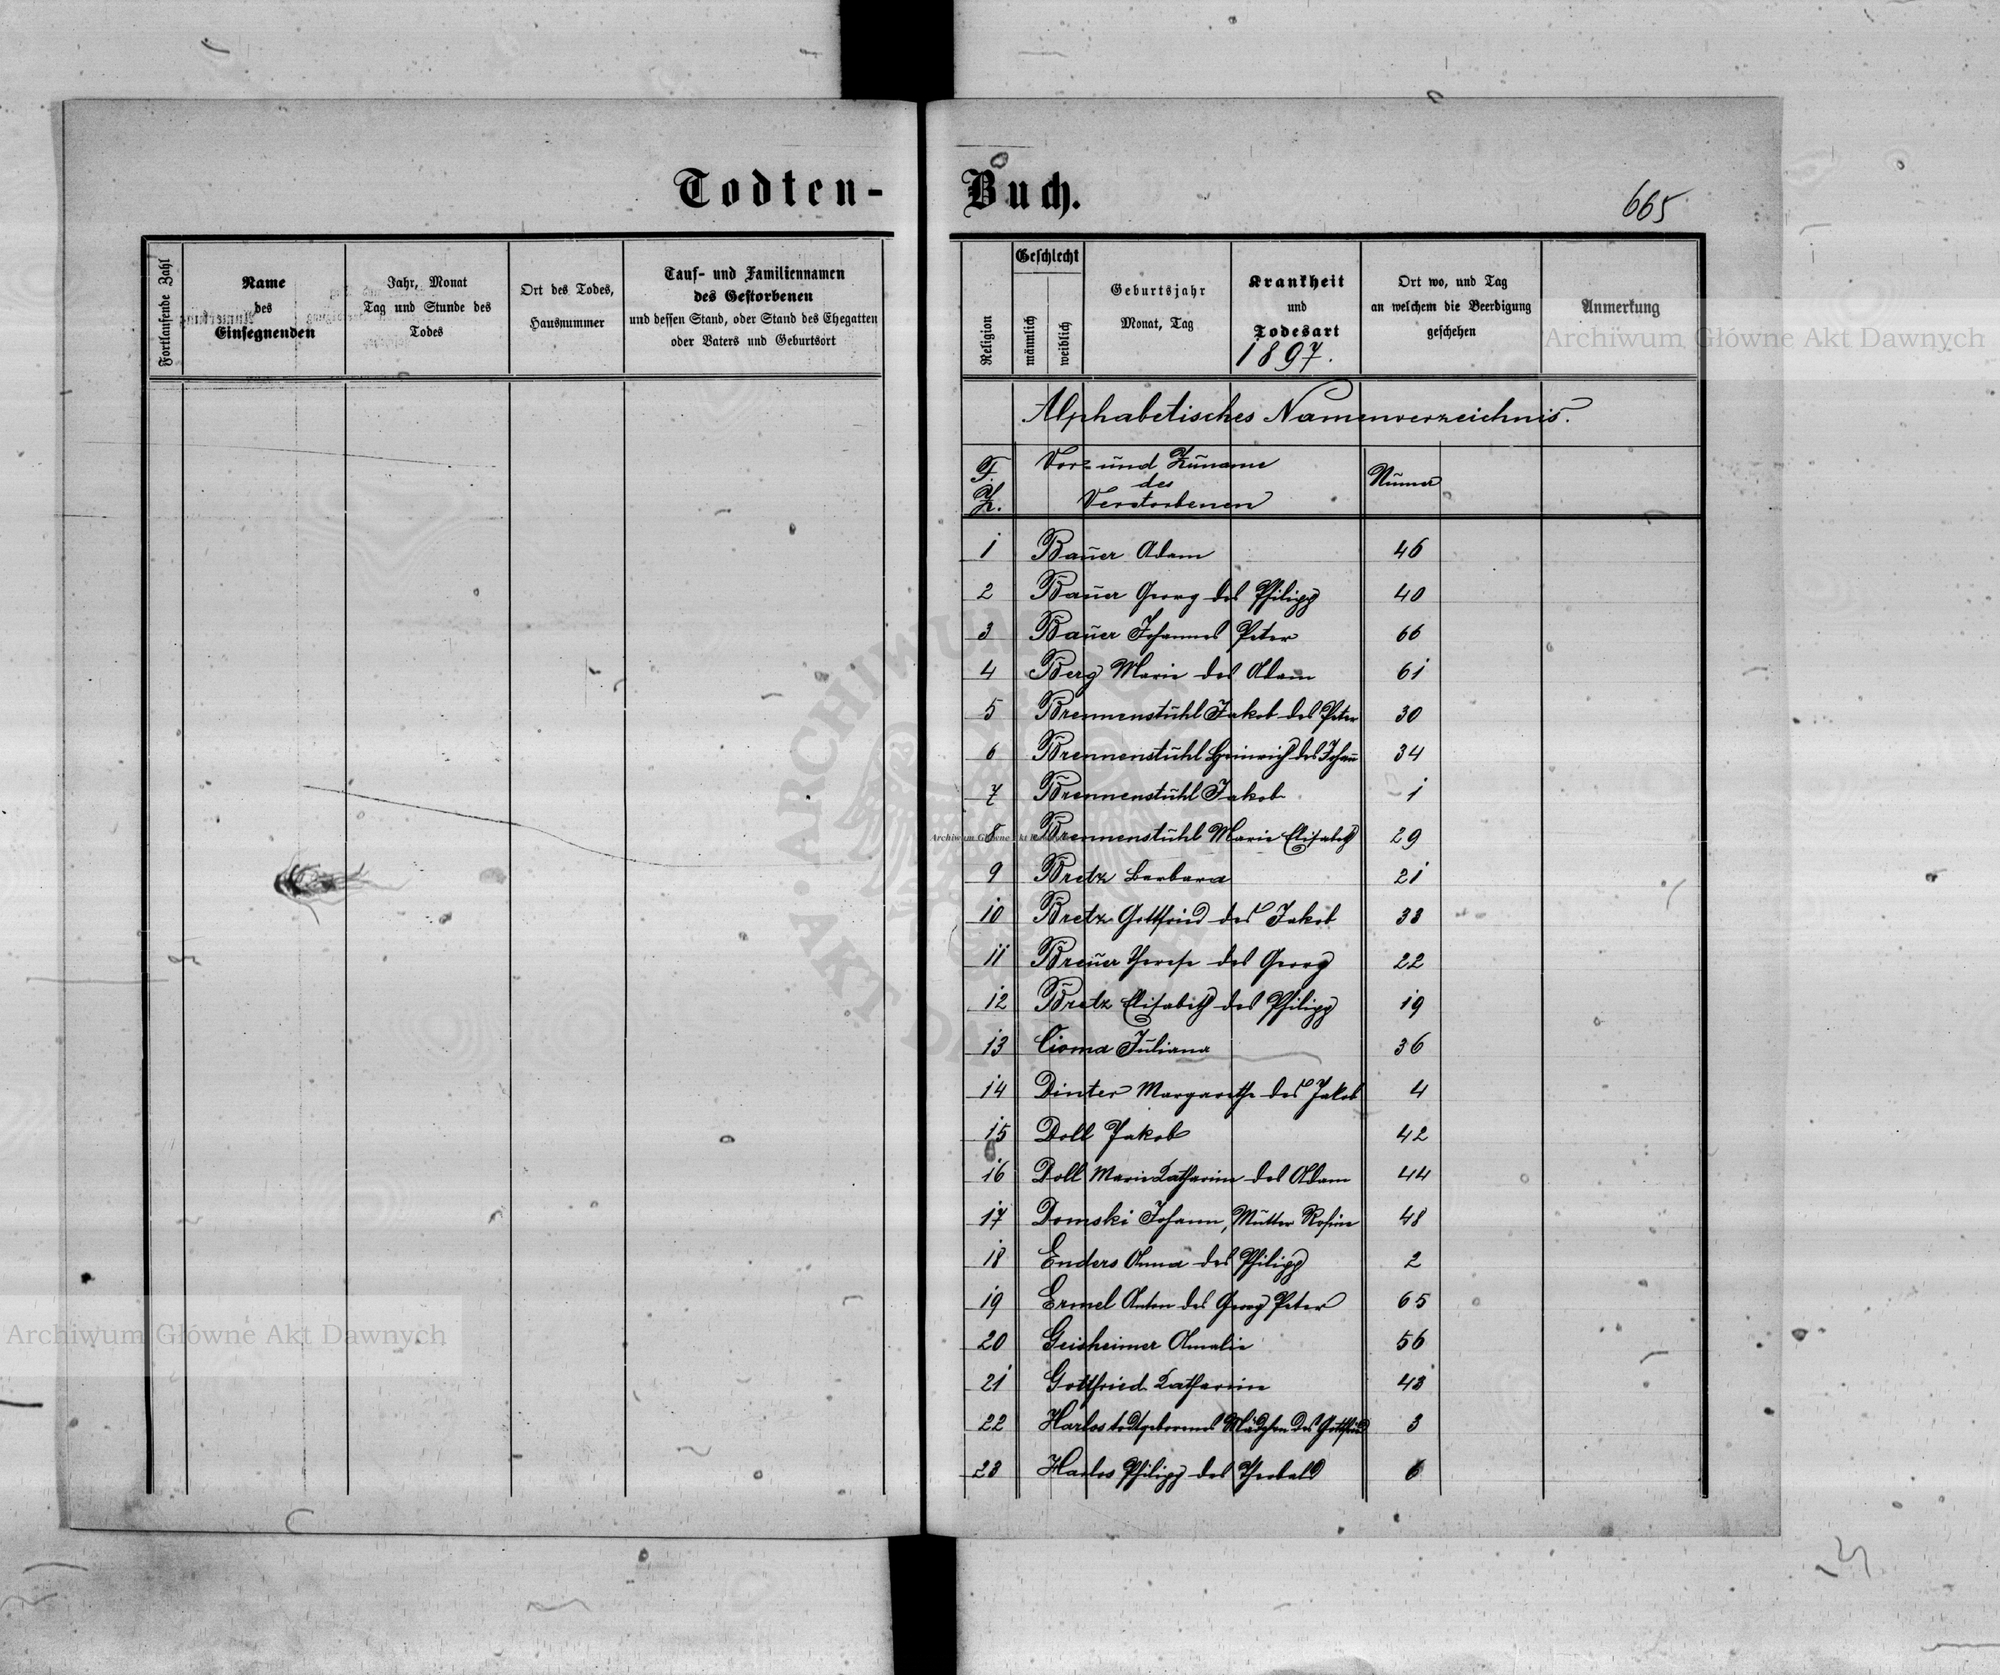 Todten-
Fortlaufende Zahl
Name
des
Einsegnenden
Jahr, Monat
Tag und Stunde des
Todes
Ort des Todes,
Hausnummer
Tauf- und Familiennamen
des Gestorbenen
und dessen Stand, oder Stand des Ehegatten
oder Vaters und Geburtsort
Buch.
665
Religion
Geschlecht
männlich
weiblich
Geburtsjahr
Monat, Tag
Krankheit
und
Todesart
1897.
Ort wo, und Tag
an welchem die Beerdigung
geschehen
Anmerkung
Alphabetisches Namenverzeichnis.
F. Z.
Vor- und Zuname
des
Verstorbenen
Numer
1 Bauer Adam 46
2 Bauer Georg des Philipp 40
3 Bauer Johannes Peter 66
4 Berg Marie des Adam 61
5 Brennenstuhl Jakob des Peter 30
6 Brennenstuhl Heinrich des Johann 34
7 Brennenstuhl Jakob 1
8 Brennenstuhl Marie Elisabeth 29
9 Bretz Barbara 21
10 Bretz Gottfried des Jakob 33
11 Breuer Therese des Georg 22
12 Bretz Elisabeth des Philipp 19
13 Cioma Juliana 36
14 Dinter Margarethe des Jakob 4
15 Doll Jakob 42
16 Doll Marie Katharina des Adam 44
17 Domski Johann, Mutter Rosine 48
18 Enders Anna des Philipp 2
19 Ermel Anton des Georg Peter 65
20 Geisheimer Amalie 56
21 Gottfried Katharina 43
22 Harlos todtgeborenes Mädchen des Gottfried 3
23 Harlos Philipp des Theobald 6
Archiwum Główne Akt Dawnych
Archiwum Główne Akt Dawnych